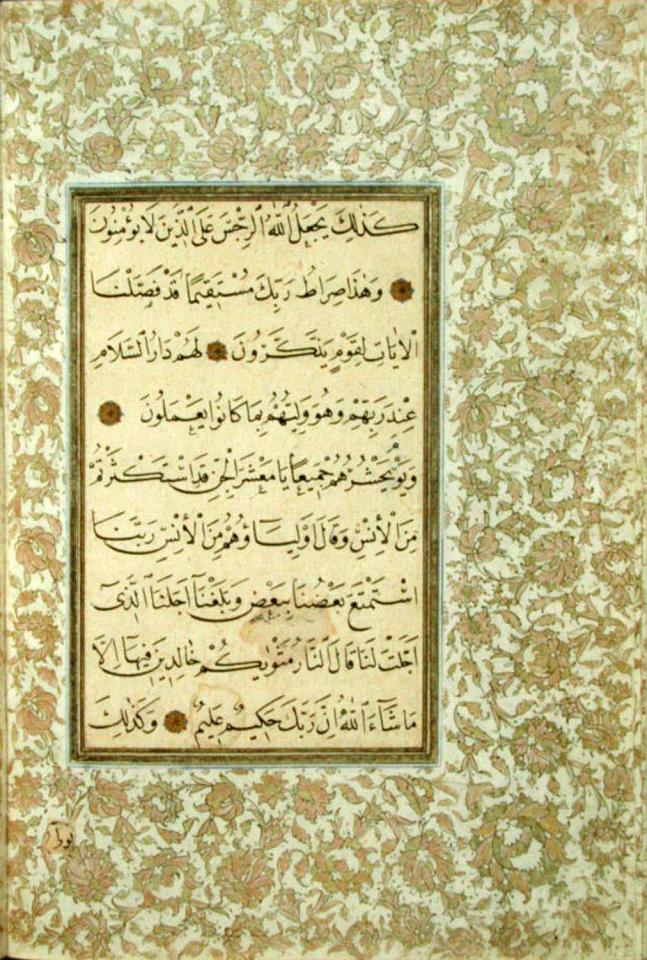 كَذٰلِكَ يَجْعَلُ اللّٰهُ الرِّجْسَ عَلَى الَّذِينَ لَا يُؤْمِنُونَ
وَهٰذَا صِرَاطُ رَبِّكَ مُسْتَقِيمًا قَدْ فَصَّلْنَا
الْاٰيَاتِ لِقَوْمٍ يَذَّكَّرُونَ لَهُمْ دَارُ السَّلَامِ
عِنْدَ رَبِّهِمْ وَهُوَ وَلِيُّهُمْ بِمَا كَانُوا يَعْمَلُونَ
وَيَوْمَ يَحْشُرُهُمْ جَمِيعًا يَا مَعْشَرَ الْجِنِّ قَدِ اسْتَكْثَرْتُمْ
مِنَ الْاِنْسِ وَقَالَ اَوْلِيَاؤُهُمْ مِنَ الْاِنْسِ رَبَّنَا
اسْتَمْتَعَ بَعْضُنَا بِبَعْضٍ وَبَلَغْنَآ اَجَلَنَا الَّذٖٓى
اَجَّلْتَ لَنَا قَالَ النَّارُ مَثْوٰيكُمْ خَالِدِينَ فِيهَا اِلَّا
مَا شَآءَ اللّٰهُ اِنَّ رَبَّكَ حَكِيمٌ عَلِيمٌ وَكَذٰلِكَ